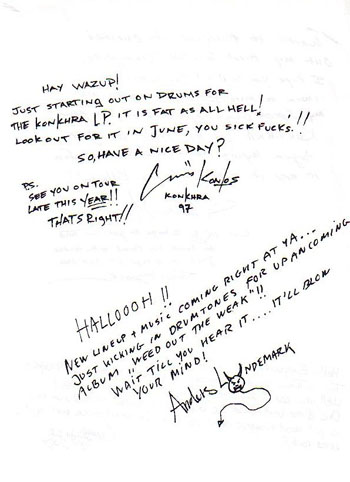 HAY WAZUP!
JUST STARTING OUT ON DRUMS FOR
THE KONKHRA LP. IT IS FAT AS ALL HELL!
LOOK OUT FOR IT IN JUNE, YOU SICK FUCKS!!
SO, HAVE A NICE DAY?
P.S.
SEE YOU ON TOUR
LATE THIS YEAR!!
THATS RIGHT!!
Chris Kontos
KONKHRA
97
HALLOOOH!!
NEW LINEUP + MUSIC COMING RIGHT AT YA...
JUST KICKING IN DRUMTONES FOR UPANCOMING
ALBUM "WEED OUT THE WEAK"!!
WAIT TILL YOU HEAR IT.... IT'LL BLOW
YOUR MIND!
Anders LUNDEMARK